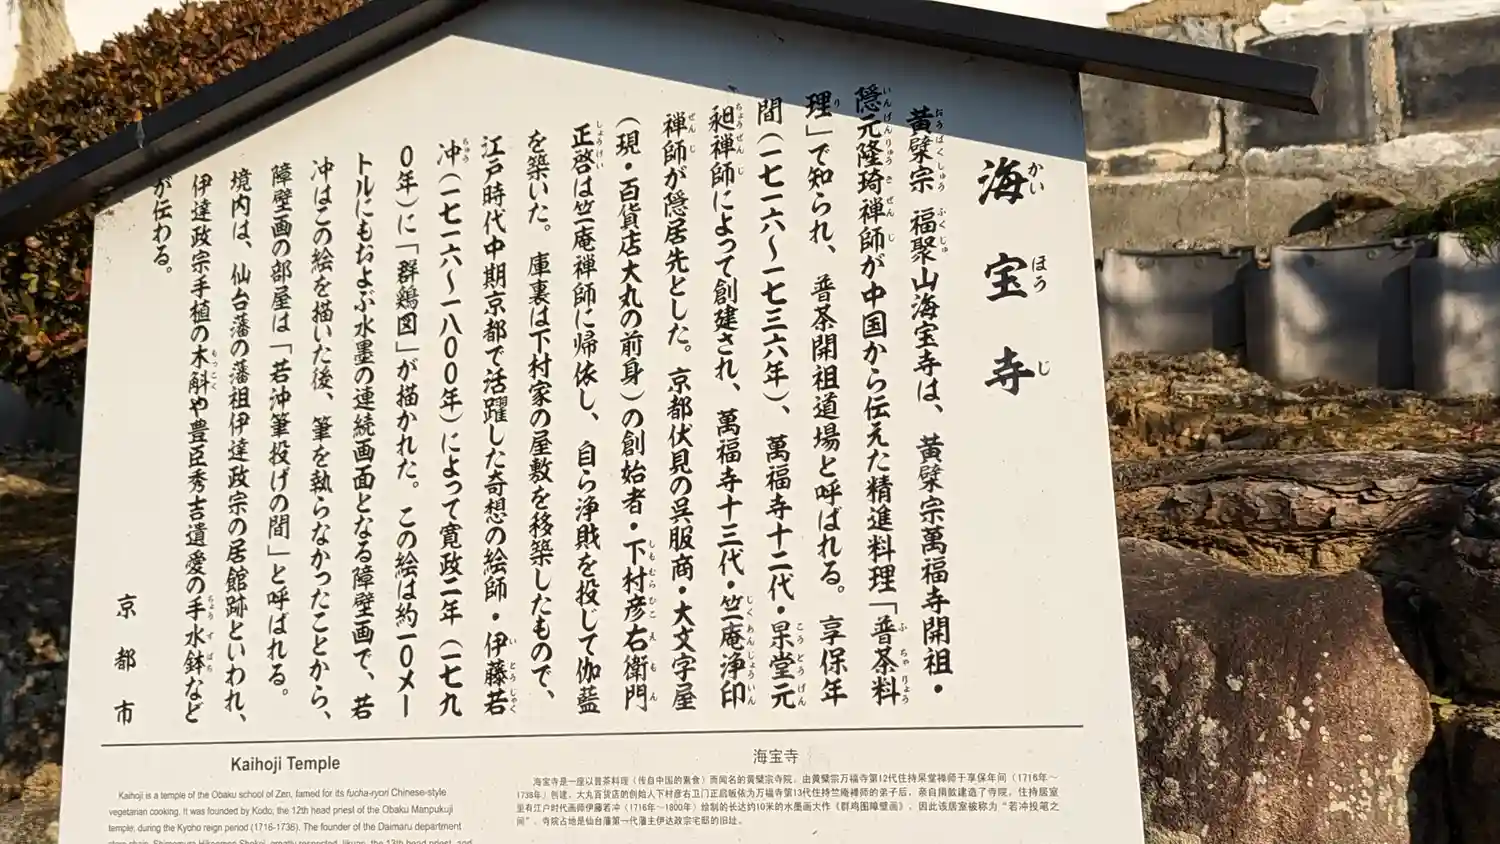 海宝寺
かいほうじ
黄檗宗 福聚山海宝寺は、黄檗宗萬福寺開祖・
隠元隆琦禅師が中国から伝えた精進料理「普茶料
理」で知られ、普茶開祖道場と呼ばれる。享保年
間(一七一六〜一七三六年)、萬福寺十二代・杲堂元
昶禅師によって創建され、萬福寺十三代・竺庵浄印
禅師が隠居先とした。京都伏見の呉服商・大文字屋
(現・百貨店大丸の前身)の創始者・下村彦右衛門
正啓は竺庵禅師に帰依し、自ら浄財を投じて伽藍
を築いた。庫裏は下村家の屋敷を移築したもので、
江戸時代中期京都で活躍した奇想の絵師・伊藤若
冲(一七一六〜一八〇〇年)によって寛政二年(一七九
〇年)に「群鶏図」が描かれた。この絵は約一〇メー
トルにもおよぶ水墨の連続画面となる障壁画で、若
冲はこの絵を描いた後、筆を執らなかったことから、
障壁画の部屋は「若冲筆投げの間」と呼ばれる。
境内は、仙台藩の藩祖伊達政宗の居館跡といわれ、
伊達政宗手植の木斛や豊臣秀吉遺愛の手水鉢など
が伝わる。
京都市
Kaihoji Temple
Kaihoji is a temple of the Obaku school of Zen, famed for its fucha-ryori Chinese-style
vegetarian cooking. It was founded by Kodo, the 12th head priest of the Obaku Manpukuji
temple, during the Kyoho reign period (1716-1736). The founder of the Daimaru department
海宝寺
海宝寺是一座以普茶料理(传自中国的素食)而闻名的黄檗宗寺院,由黄檗宗万福寺第12代住持杲堂禅师于享保年间(1716年〜
1736年)创建。大丸百货店的创始人下村彦右卫门正启皈依为万福寺第13代住持竺庵禅师的弟子后,亲自捐款建造了寺院。住持居室
里有江户时代画师伊藤若冲(1716年〜1800年)绘制的长达约10米的水墨画大作《群鸡图障壁画》,因此该居室被称为“若冲投笔之
间”。寺院占地是仙台藩第一代藩主伊达政宗宅邸的旧址。